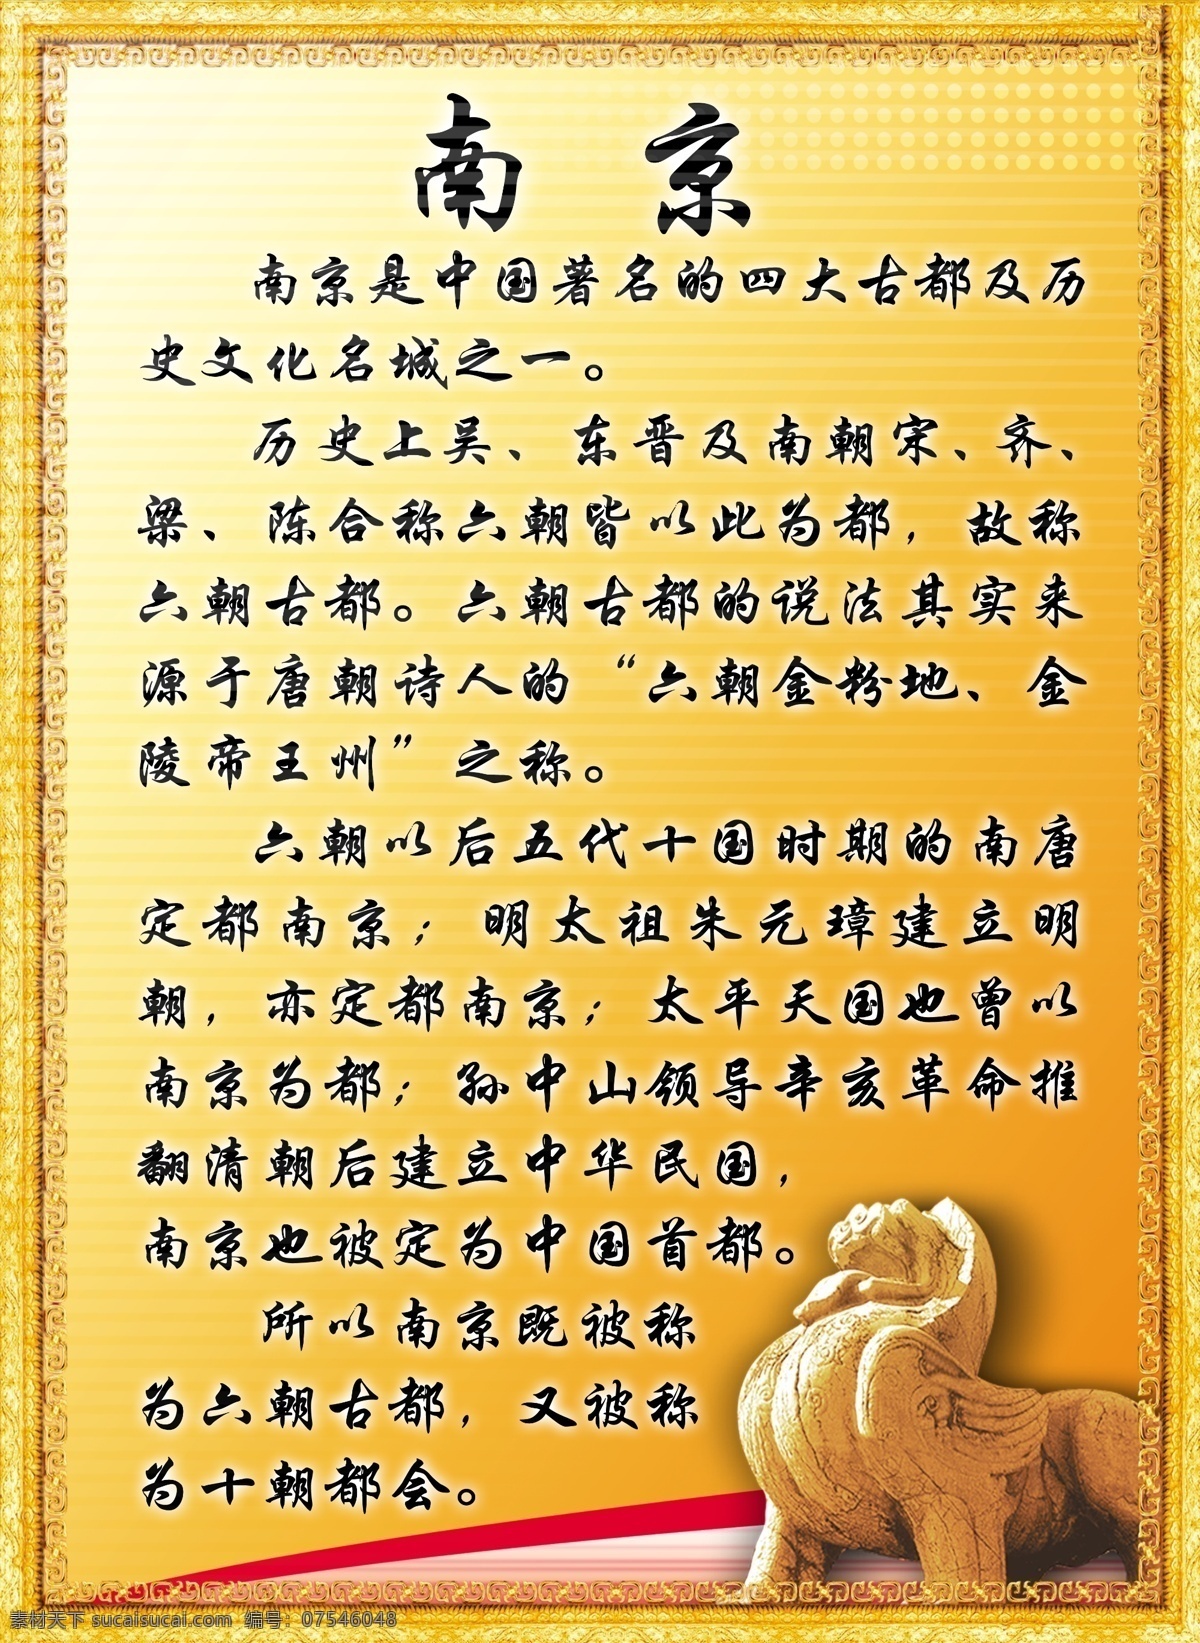 南 京
南京是中国著名的四大古都及历
史文化名城之一。
历史上吴、东晋及南朝宋、齐、
梁、陈合称六朝皆以此为都，故称
六朝古都。六朝古都的说法其实来
源于唐朝诗人的“六朝金粉地、金
陵帝王州”之称。
六朝以后五代十国时期的南唐
定都南京；明太祖朱元璋建立明
朝，亦定都南京；太平天国也曾以
南京为都；孙中山领导辛亥革命推
翻清朝后建立中华民国，
南京也被定为中国首都。
所以南京既被称
为六朝古都，又被称
为十朝都会。
素材天下 sucaisucai.com 编号：07546048